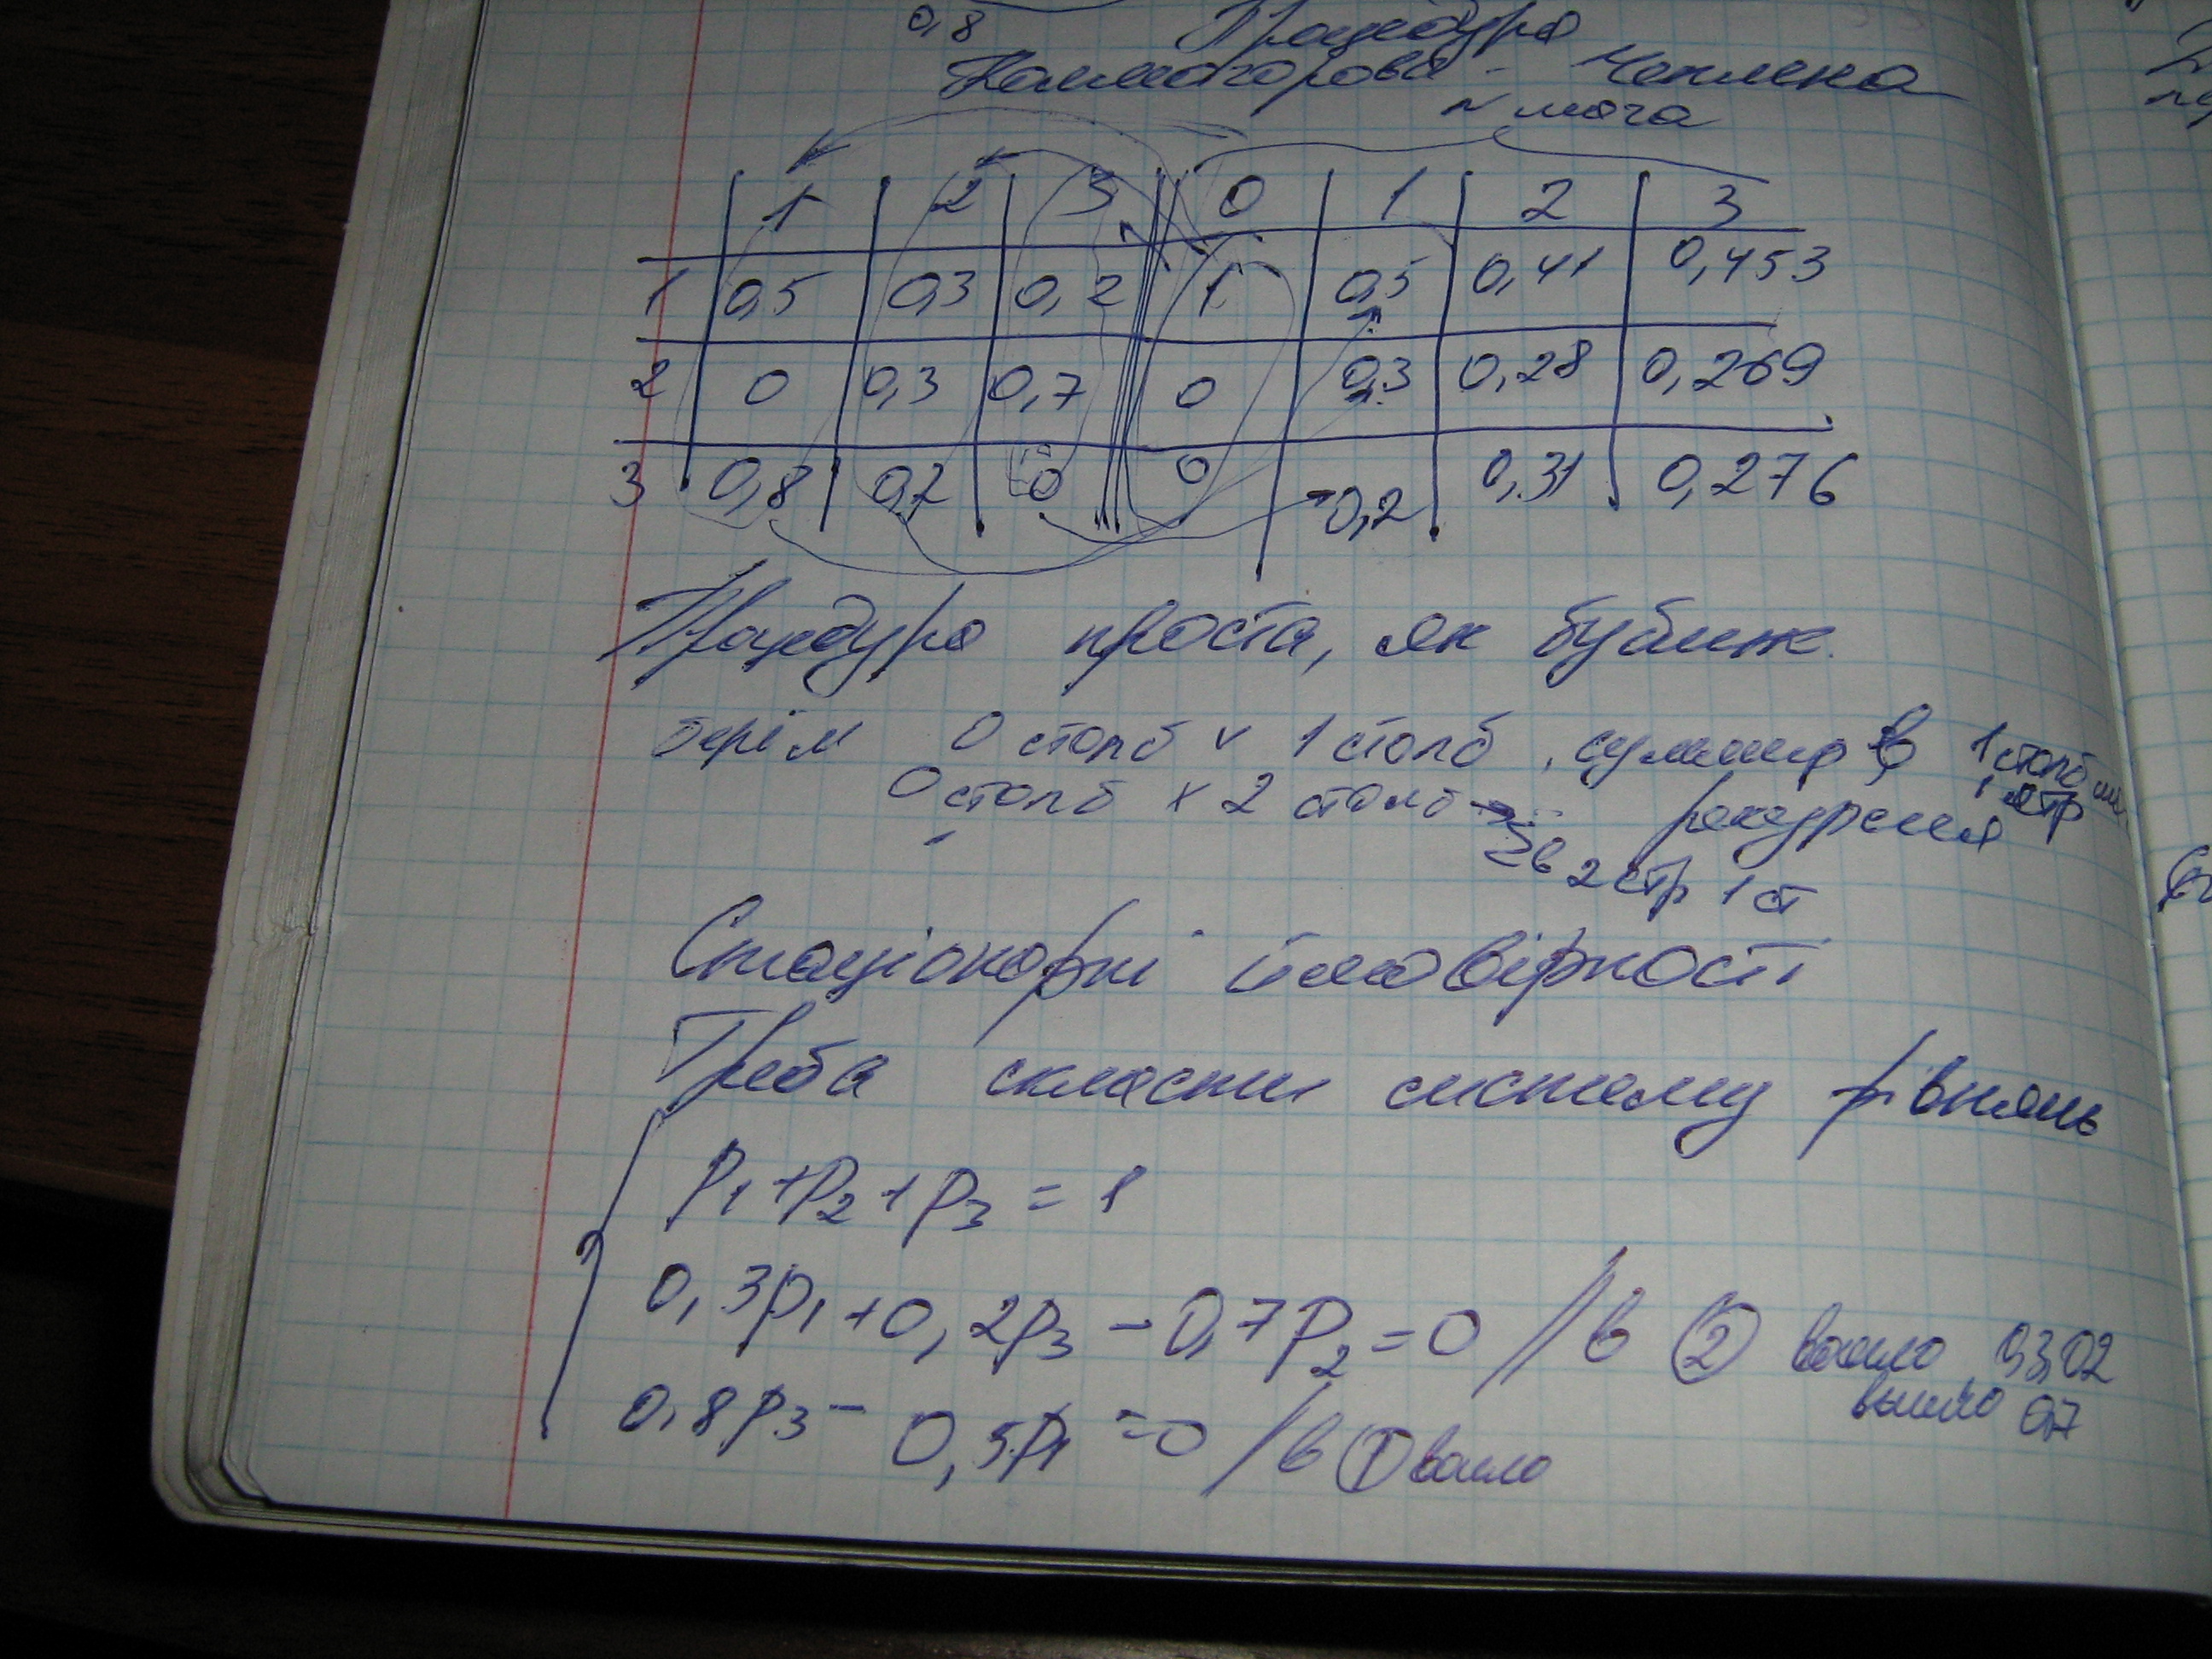 0,8 Процедура
Колмогорова - Чепмена
№ шага
1 2 3 0 1 2 3
1 0,5 0,3 0,2 1 0,5 0,41 0,453
2 0 0,3 0,7 0 0,3 0,28 0,269
3 0,8 0,2 0 0 0,2 0,31 0,276
Процедура проста, як бублик.
берём 0 столб x 1 столб, суммир в 1 столб
0 столб x 2 столб → 1 стр
рекурсия
Σ в 2 стр 1 ст
Стаціонарні ймовірності
Треба скласти систему рівнянь
p1 + p2 + p3 = 1
0,3p1 + 0,2p3 - 0,7p2 = 0 // в (2) вошло
вышло 0,7
0,8p3 - 0,5p1 = 0 / в (1) вошло